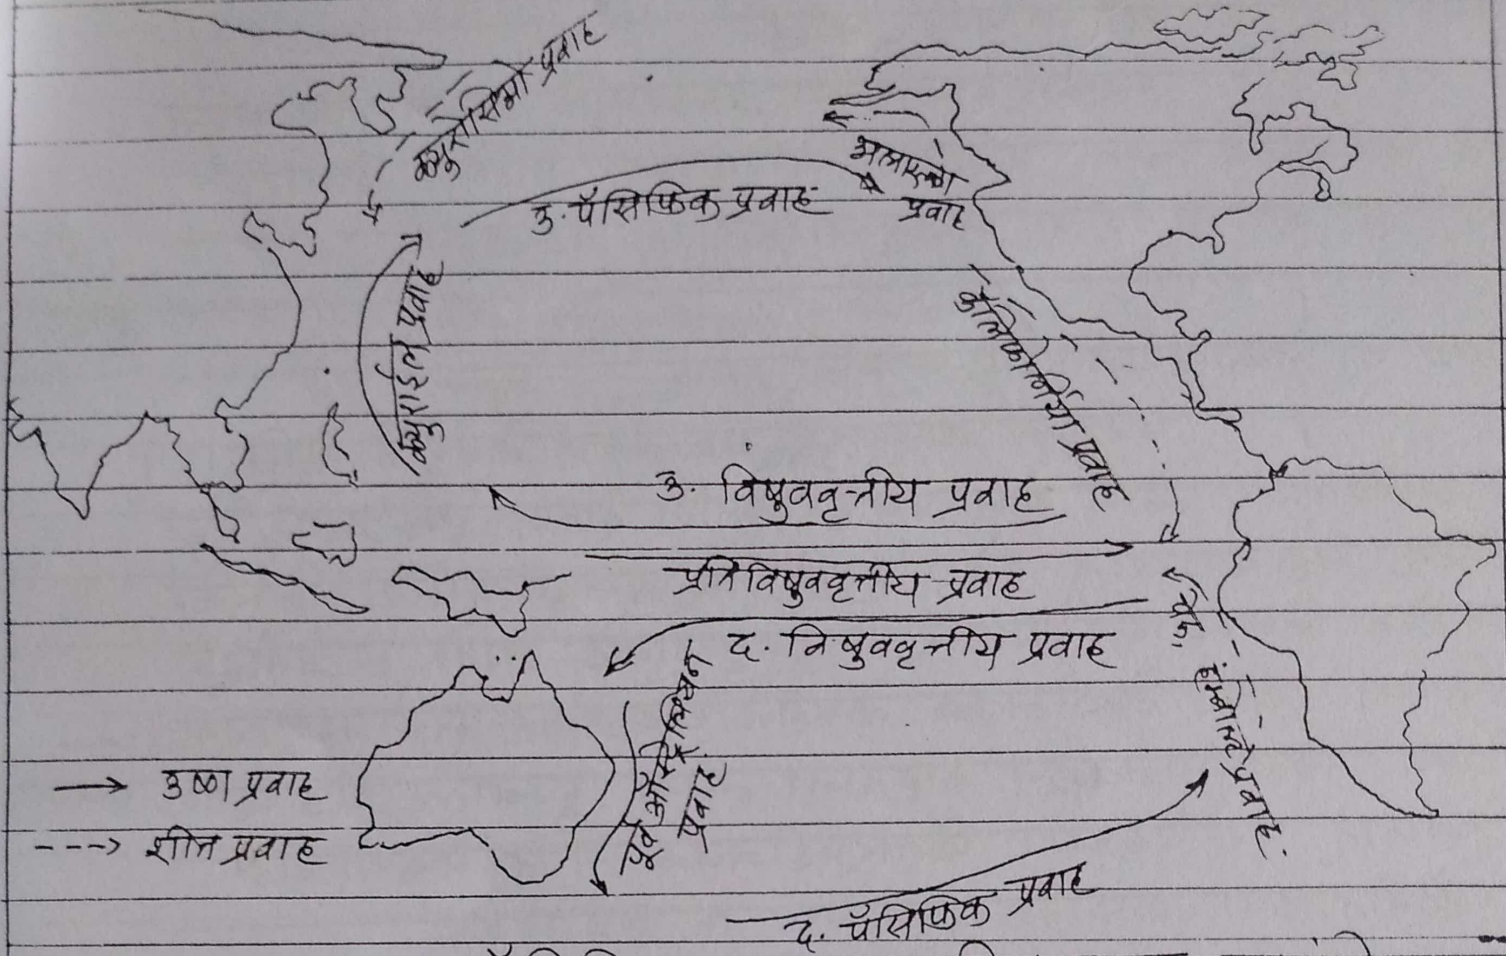 क्युरोसिमो प्रवाह
अलास्का
प्रवाह
उ. पॅसिफिक प्रवाह
क्युराईल प्रवाह
कॅलिफोर्निया प्रवाह
उ. विषुववृत्तीय प्रवाह
प्रतिविषुववृत्तीय प्रवाह
द. विषुववृत्तीय प्रवाह
पेरू
हंम्बोल्ट प्रवाह
पूर्व ऑस्ट्रेलियन
प्रवाह
उष्ण प्रवाह
शीत प्रवाह
द. पॅसिफिक प्रवाह